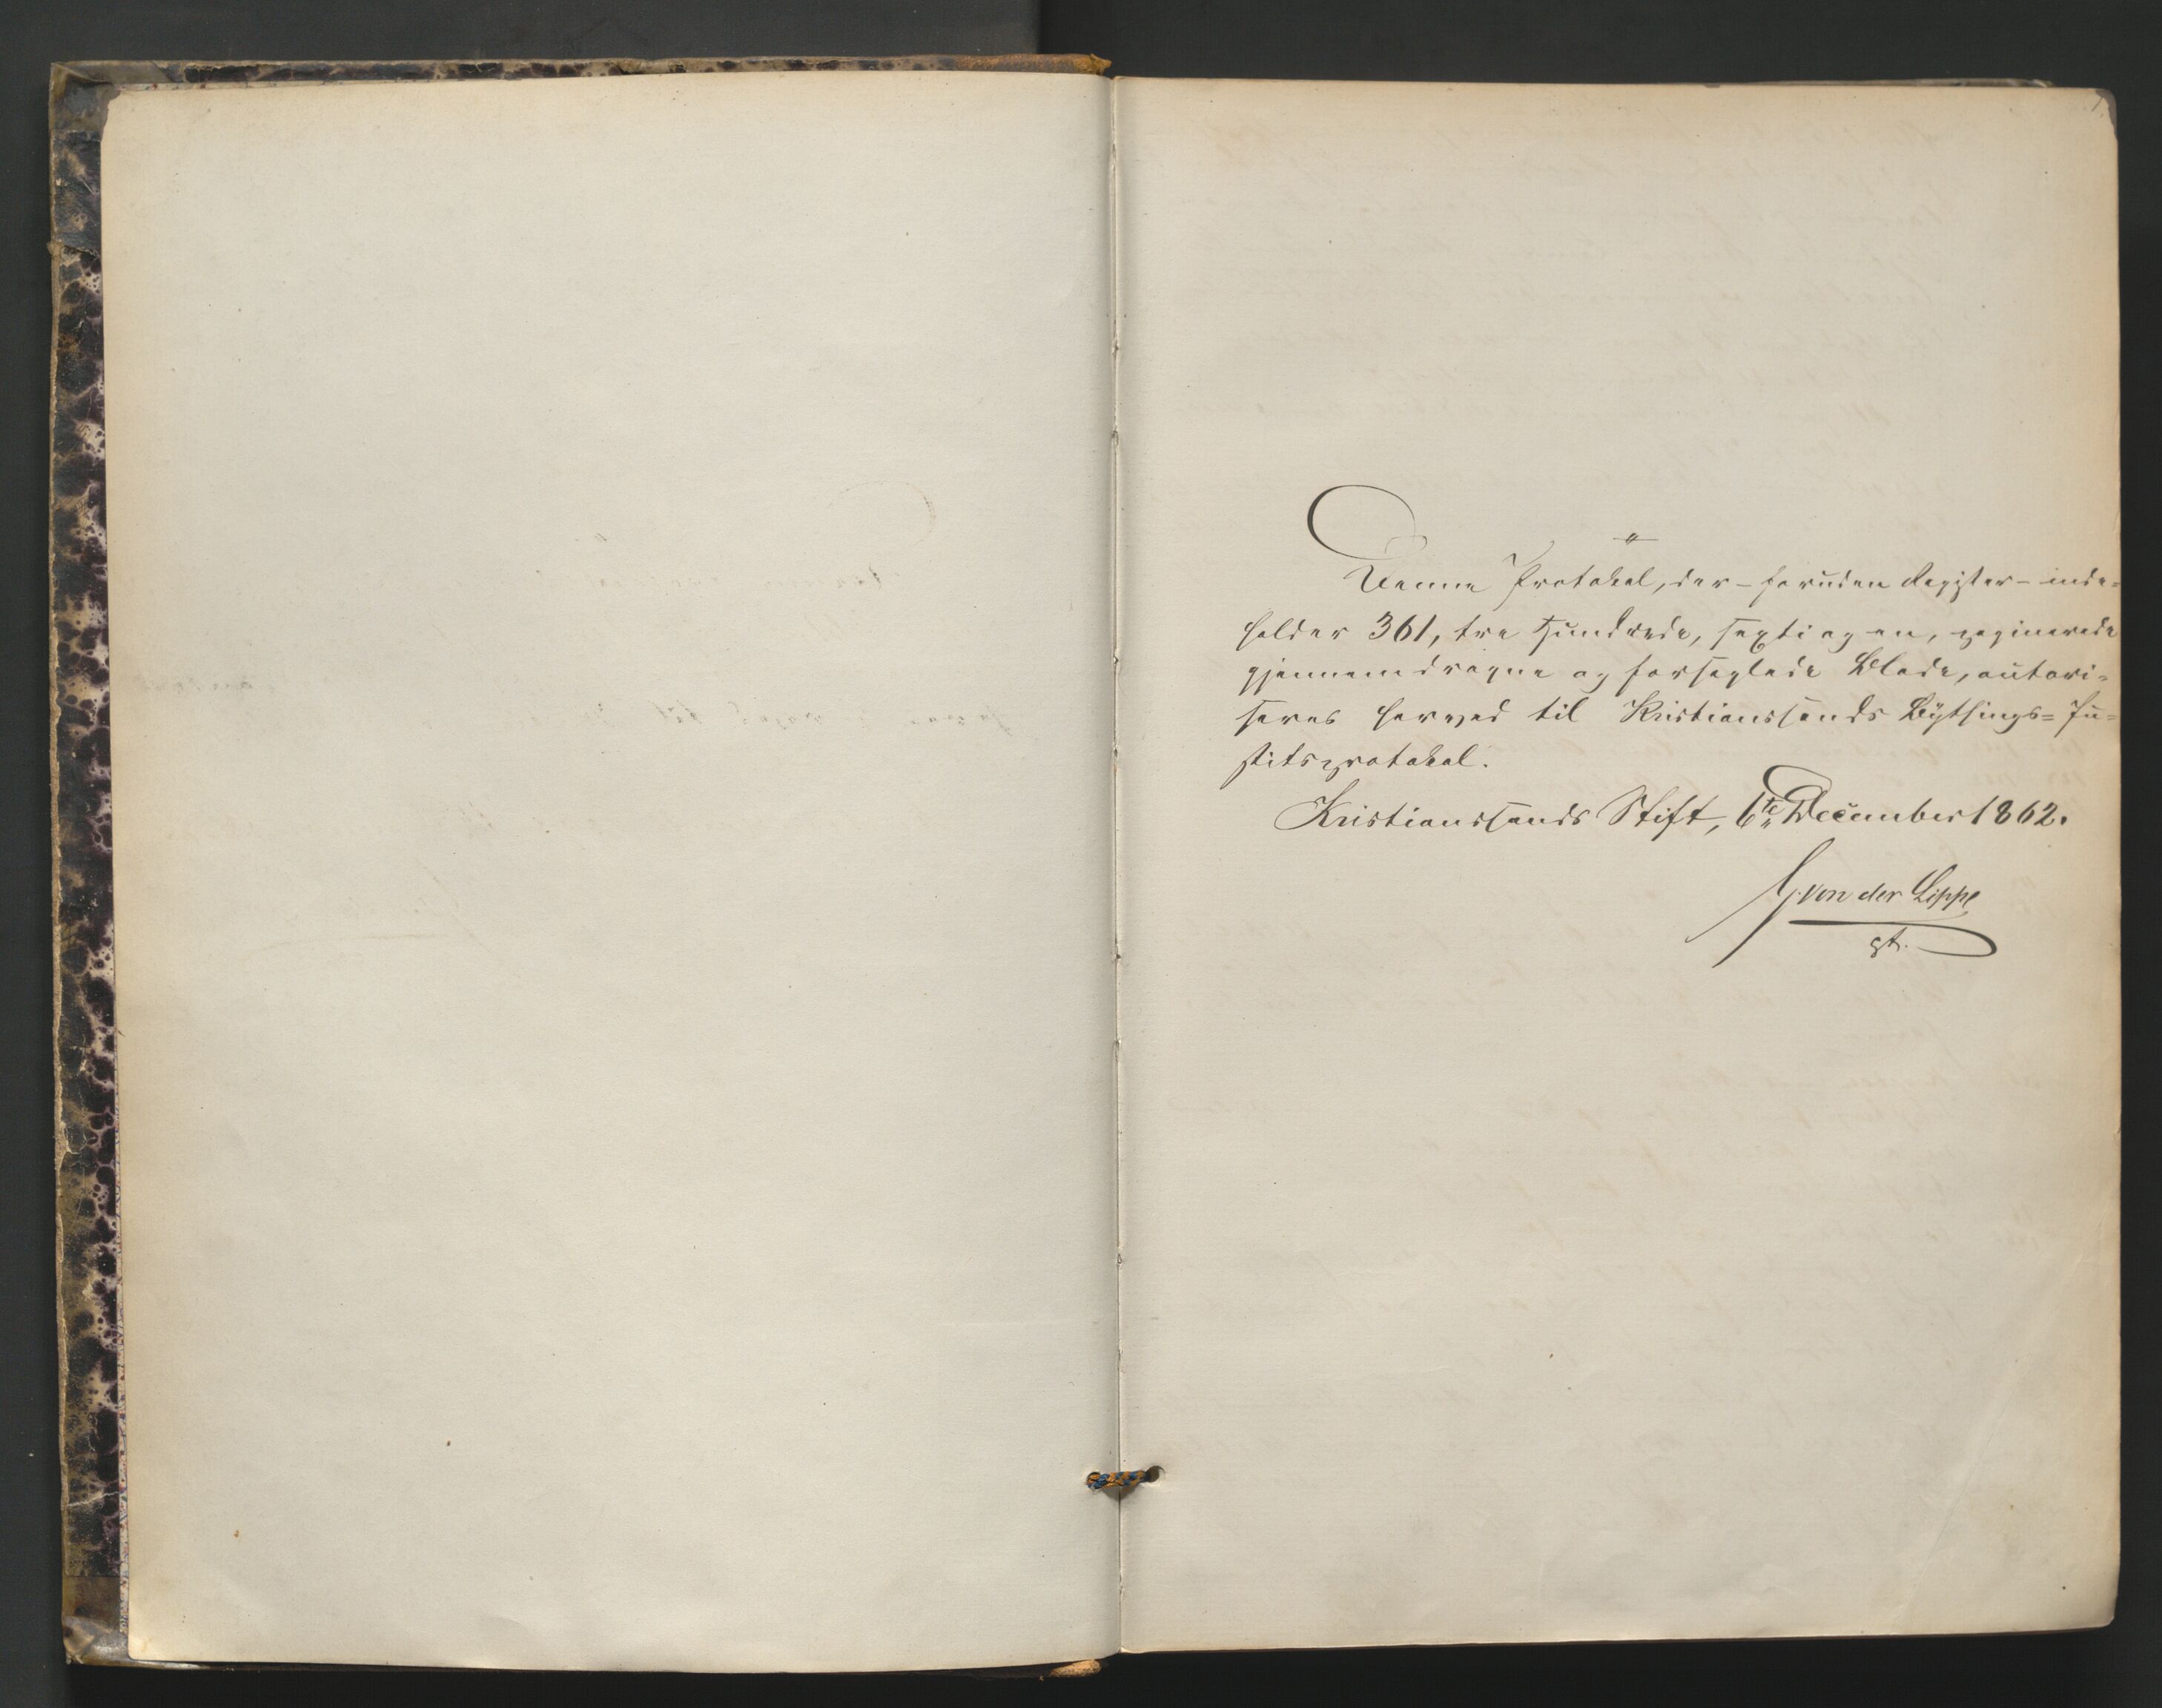 1.
Denne Protokol, der - foruden Register - inde-
holder 361, tre Hundrede, sexti og en, paginerede
gjennemdragne og forseglede Blade, autori-
seres herved til Kristianssands Bythings-Ju-
stitsprotokol.
Kristianssands Stift, 6te December 1862.
von der Lippe